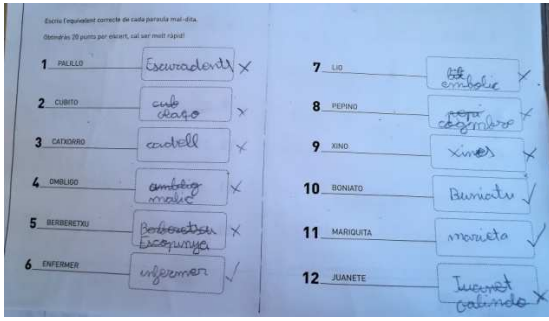 Escriu l'equivalent correcte de cada paraula mal-dita.
Obtindràs 20 punts per encert, cal ser molt ràpid!
1 PALILLO Escuradents X
2 CUBITO cub
glaçó X
3 CATXORRO cadell X
4 OMBLIGO amblig
malic X
5 BERBERETXU Berberetxu
Escopinya X
6 ENFERMER infermer ✓
7 LIO
embolic X
8 PEPINO pepi
cogombre X
9 XINO Xinès X
10 BONIATO Buniatu ✓
11 MARIQUITA marieta ✓
12 JUANETE Juanet
galindo X